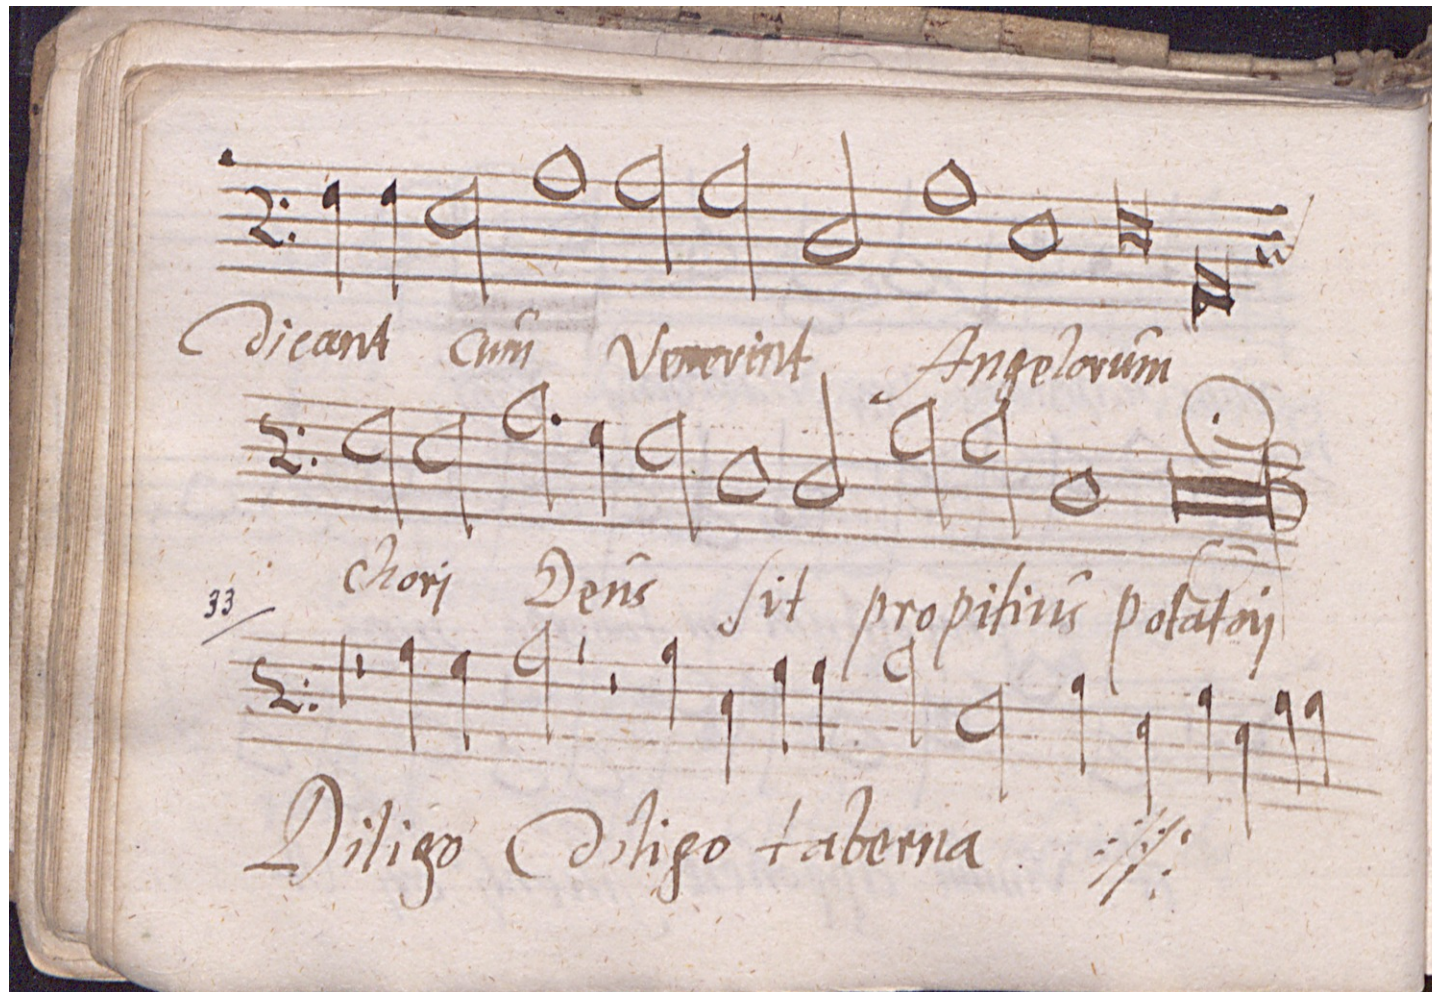 Dicant cum̄ Venerint Angelorum̄
chorj Deus̄ sit propitius̄ potatorij
33
Diligo Diligo taberna